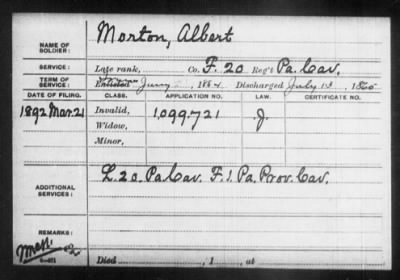 NAME OF SOLDIER: Morton, Albert
SERVICE: Late rank, Co. F. 20 Reg't Pa. Cav.
TERM OF SERVICE: Enlisted 1864 Discharged July 13, 186
DATE OF FILING. CLASS. APPLICATION NO. LAW. CERTIFICATE NO.
1892 Mar. 21 Invalid, 1,099,721 J.
Widow,
Minor,
ADDITIONAL SERVICES: L. 20. Pa Cav. F. 1. Pa. Prov. Cav.
REMARKS:
Died , 1 , at